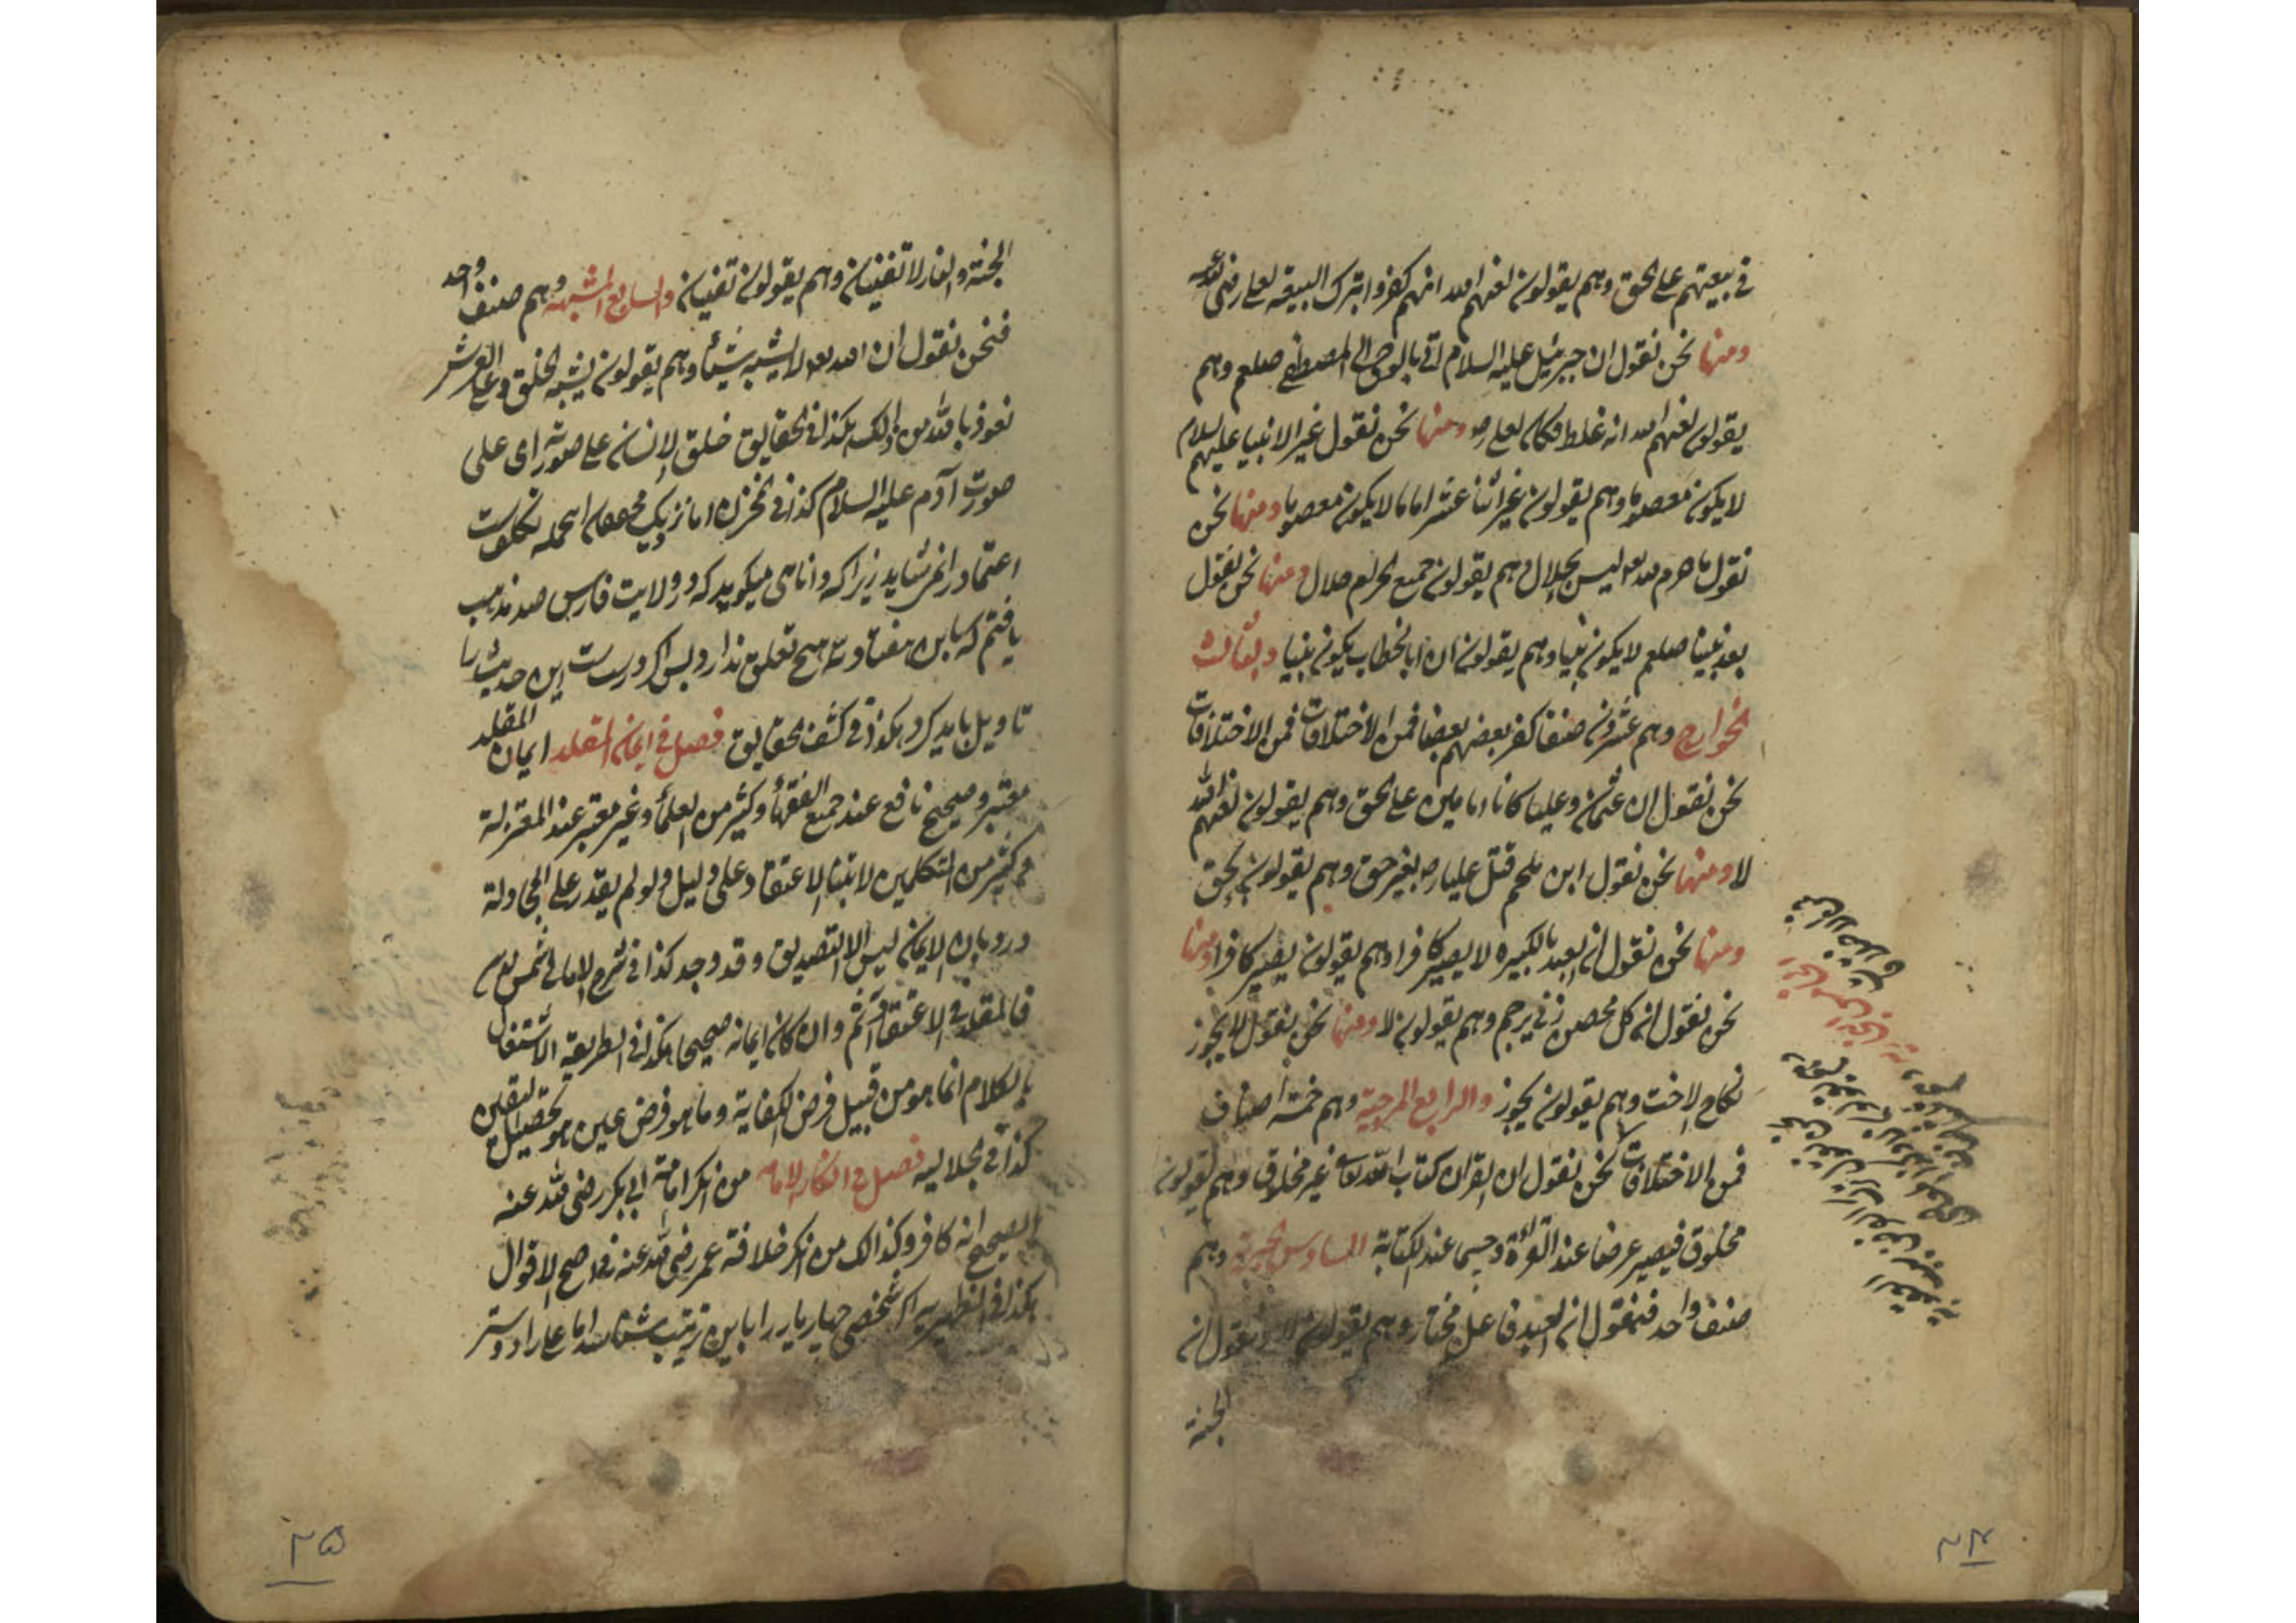 في بيعتهم على الحق وهم يقولون لعنهم الله انهم كفروا بترك البيعة لعلي رضي الله عنه
ومنها نحن نقول ان جبرئيل عليه السلام اتى بالوحي الى المصطفى صلعم وهم
يقولون لعنهم الله انه غلط فكان لعلي رض ومنها نحن نقول غير الانبيا عليهم السلام
لا يكون معصوما وهم يقولون غير اثنا عشر اماما لا يكون معصوما ومنها نحن
نقول ما حرم الله تعه ليس بحلال وهم يقولون جميع الحرام حلال ومنها نحن نقول
بعد نبينا صلعم لا يكون نبيا وهم يقولون ان ابا الخطاب يكون نبيا والثالث
الخوارج وهم عشرون صنفا كفر بعضهم بعضا فمن الاختلافات فمن الاختلافات
نحن نقول ان عثمان وعليا كانا امامين على الحق وهم يقولون لعنهم الله
لا ومنها نحن نقول ابن ملجم قتل عليا رض بغير حق وهم يقولون بحق
ومنها نحن نقول ان العبد بالكبيره لا يصير كافرا وهم يقولون يصير كافرا ومنها
نحن نقول ان كل محصن زنى يرجم وهم يقولون لا ومنها نحن نقول لا يجوز
نكاح الاخت وهم يقولون يجوز والرابع المرجية وهم خمسة اصناف
فمن الاختلافات نحن نقول ان القران كتاب الله تعالى غير مخلوق وهم يقولون
مخلوق فيصير عرضا عند القراءة وجسما عند الكتابة السادس الجبرية وهم
صنف واحد فنقول ان العبد فاعل مختار وهم يقولون لا ونقول ان
الجنة
٢٤
الجنة والنار لا تفنيان وهم يقولون تفنيان والسابع المشبهه وهم صنف واحد
فنحن نقول ان الله تعه لا يشبه شيئا وهم يقولون يشبه الخلق وعلى العرش
نعوذ بالله من ذلك هكذا في الحقايق خلق الانسان على صورته اى على
صورت آدم عليه السلام كذا في المخزن اما نزديك
اعتماد را نمى شايد زيرا كه دانا هى ميكويد كه در ولايت فارس صد مذهب
يافتم كه باين هفتاد وسه هيچ تعلق ندارد پس اكر درست است اين حديث را
تاويل بايد كرد هكذا في كشف الحقايق فصل في ايمان المقلد ايمان المقلد
معتبر وصحيح نافع عند جميع الفقهاء وكثير من العلماء وغير معتبر عند المعتزلة
وكثير من المتكلمين لابتناء الاعتقاد على دليل ولو لم يقدر على المجادلة
ورد بان الايمان ليس الا التصديق وقد وجد كذا في شرح الامالي
فالمقلد في الاعتقاد آثم وان كان ايمانه صحيحا هكذا في الطريقة الاشتغال
بالكلام انما هو من قبيل فرض الكفاية وما هو فرض عين هو تحصيل اليقين
كذا في الجلاليه فصل في انكار الامامة من انكر امامة ابي بكر رضي الله عنه
الصحيح انه كافر وكذالك من انكر خلافة عمر رضي الله عنه في اصح الاقوال
هكذا في الظهيريه اكر شخصى چهار يار را باين ترتيب شناسد اما على را دوستر
٢٥